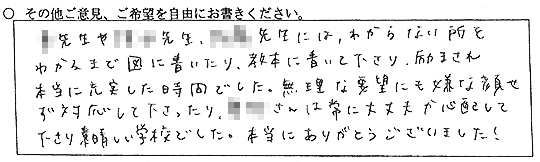 ○ その他ご意見、ご希望を自由にお書きください。
先生や 先生、 先生には、わからない所を
わかるまで図に書いたり、教本に書いて下さり、励まされ
本当に充実した時間でした。無理な要望にも嫌な顔せ
ず対応して下さったり、 さんは常に大丈夫か心配して
下さり素晴しい学校でした。本当にありがとうございました!